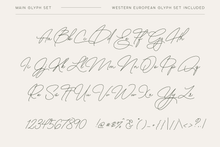 MAIN GLYPH SET
WESTERN EUROPEAN GLYPH SET INCLUDED
Aa Bb Cc Dd Ee Ff Gg Hh
Ii Jj Kk Ll Mm Nn Oo Pp Qq
Rr Ss Tt Uu Vv Ww Xx Yy Zz
1234567890